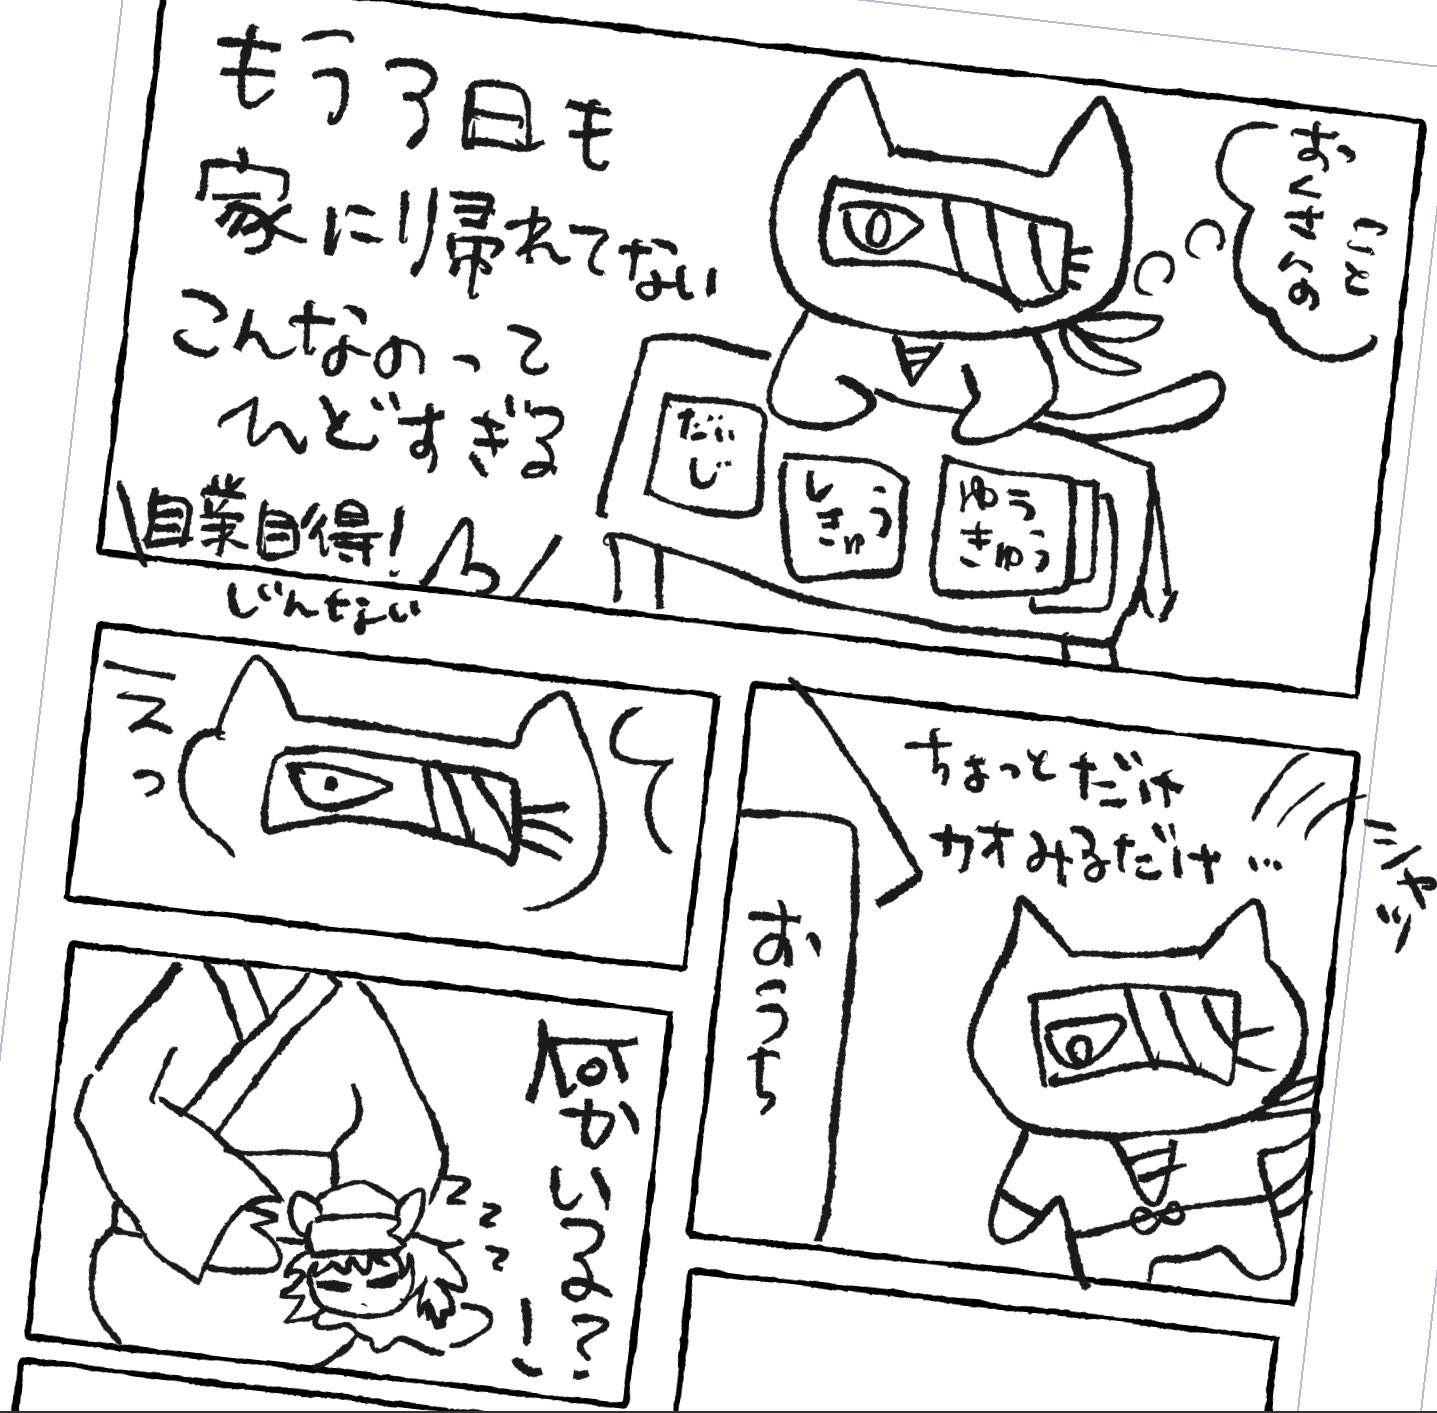 おくさんの
こと
もう3日も
家に帰れてない
こんなのって
ひどすぎる
自業自得!
じんない
だいじ
しきゅう
ゆうきゅう
ちょっとだけ
カオみるだけ…
シャッ
おうち
えっ
何かいる?
!
zzz